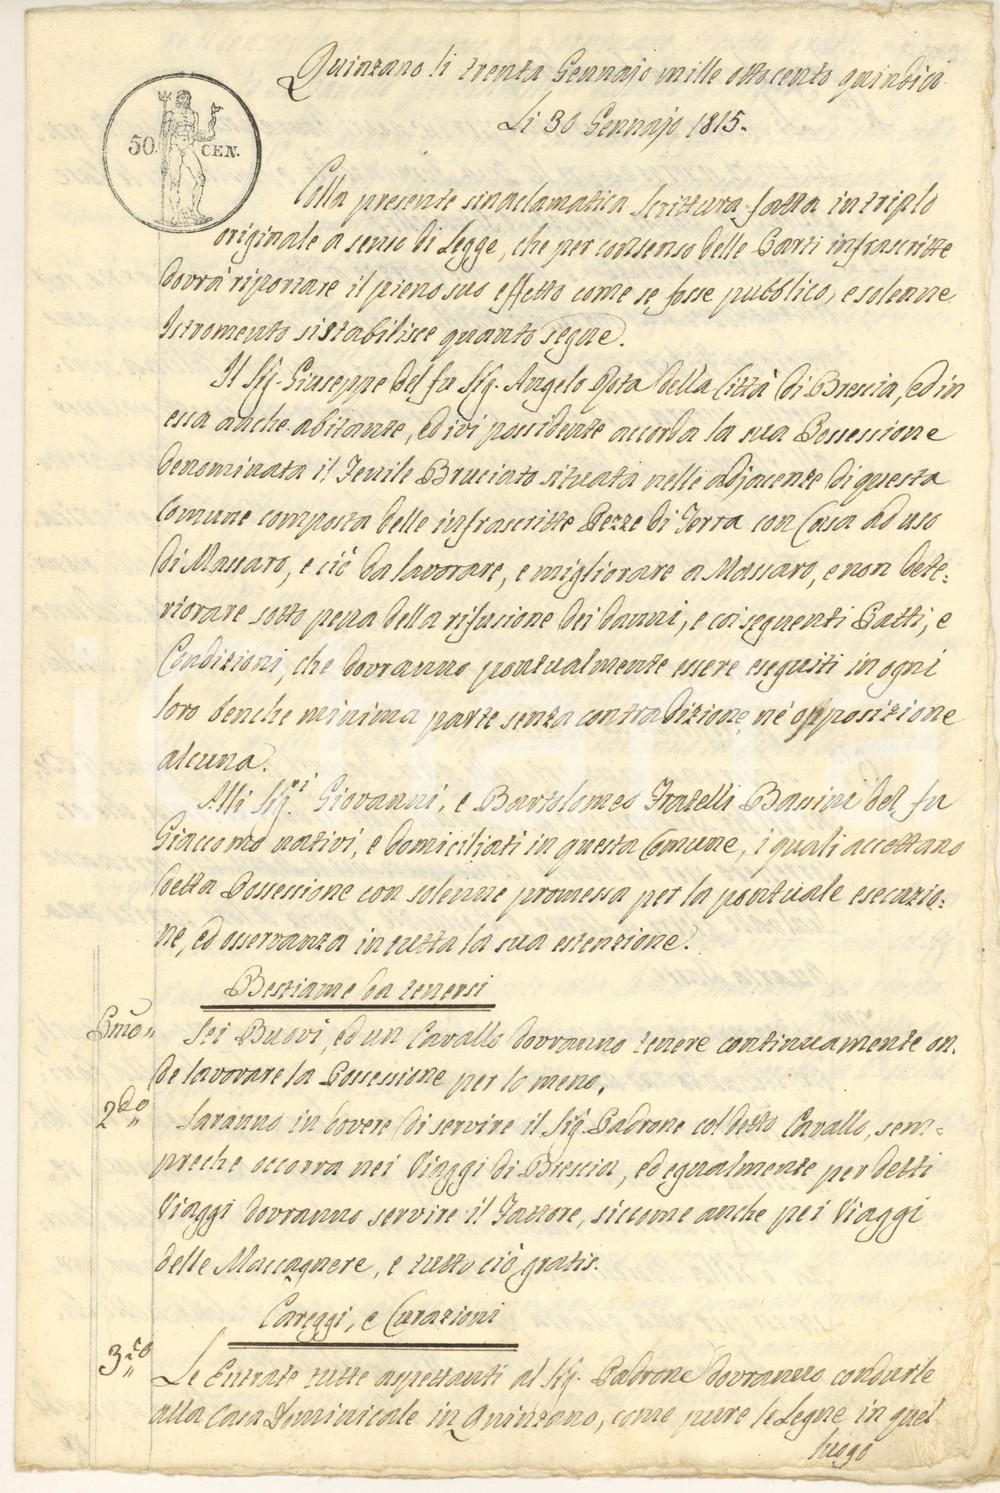 Quinzano li trenta Gennajo mille ottocento quindici
Li 30 Gennajo 1815.
50. CEN.
Colla presente sinaclamatica Scrittura fatta in triplo
originale a senso di Legge, che per consenso delle Parti infrascritte
dovrà riportare il pieno suo effetto come se fosse pubblico, e solenne
Istromento si stabilisce quanto segue.
Il Sig. Giuseppe del fu Sig. Angelo Rota della Città di Brescia, ed in
essa anche abitante, ed ivi possidente accorda la sua Possessione
denominata il Fenile Bruciato situata nelle adjacenze di questa
Comune composta delle infrascritte Pezze di Terra con Casa ad uso
di Massaro, e ciò da lavorare, e migliorare a Massaro, e non dete=
riorare sotto pena della rifusione dei danni, e coi seguenti Patti, e
Condizioni, che dovranno pontualmente essere eseguiti in ogni
loro benche minima parte senza contradizione, nè opposizione
alcuna.
Alli Sig.ri Giovanni, e Bartolomeo Fratelli Bassini del fu
Giaccomo nativi, e domiciliati in questa Comune, i quali accettano
detta Possessione con solenne promessa per la pontuale esecuzio=
ne, ed osservanza in tutta la sua estenzione.
Bestiame da tenersi
Pmo „ Sei Buovi, ed un Cavallo dovranno tenere continuamente on=
de lavorare la Possessione per lo meno.
2do „ Saranno in dovere di servire il Sig. Padrone col detto Cavallo, sem=
preche occorra nei Viaggi di Brescia, ed egualmente per detti
Viaggi dovranno servire il Fattore, siccome anche pei Viaggi
delle Maccagnere, e tutto ciò gratis.
Careggi, e Curazioni
3zo „ Le Entrate tutte aspettanti al Sig. Padrone dovranno condurle
alla Casa Dominicale in Quinzano, come pure le Legne in quel
luogo